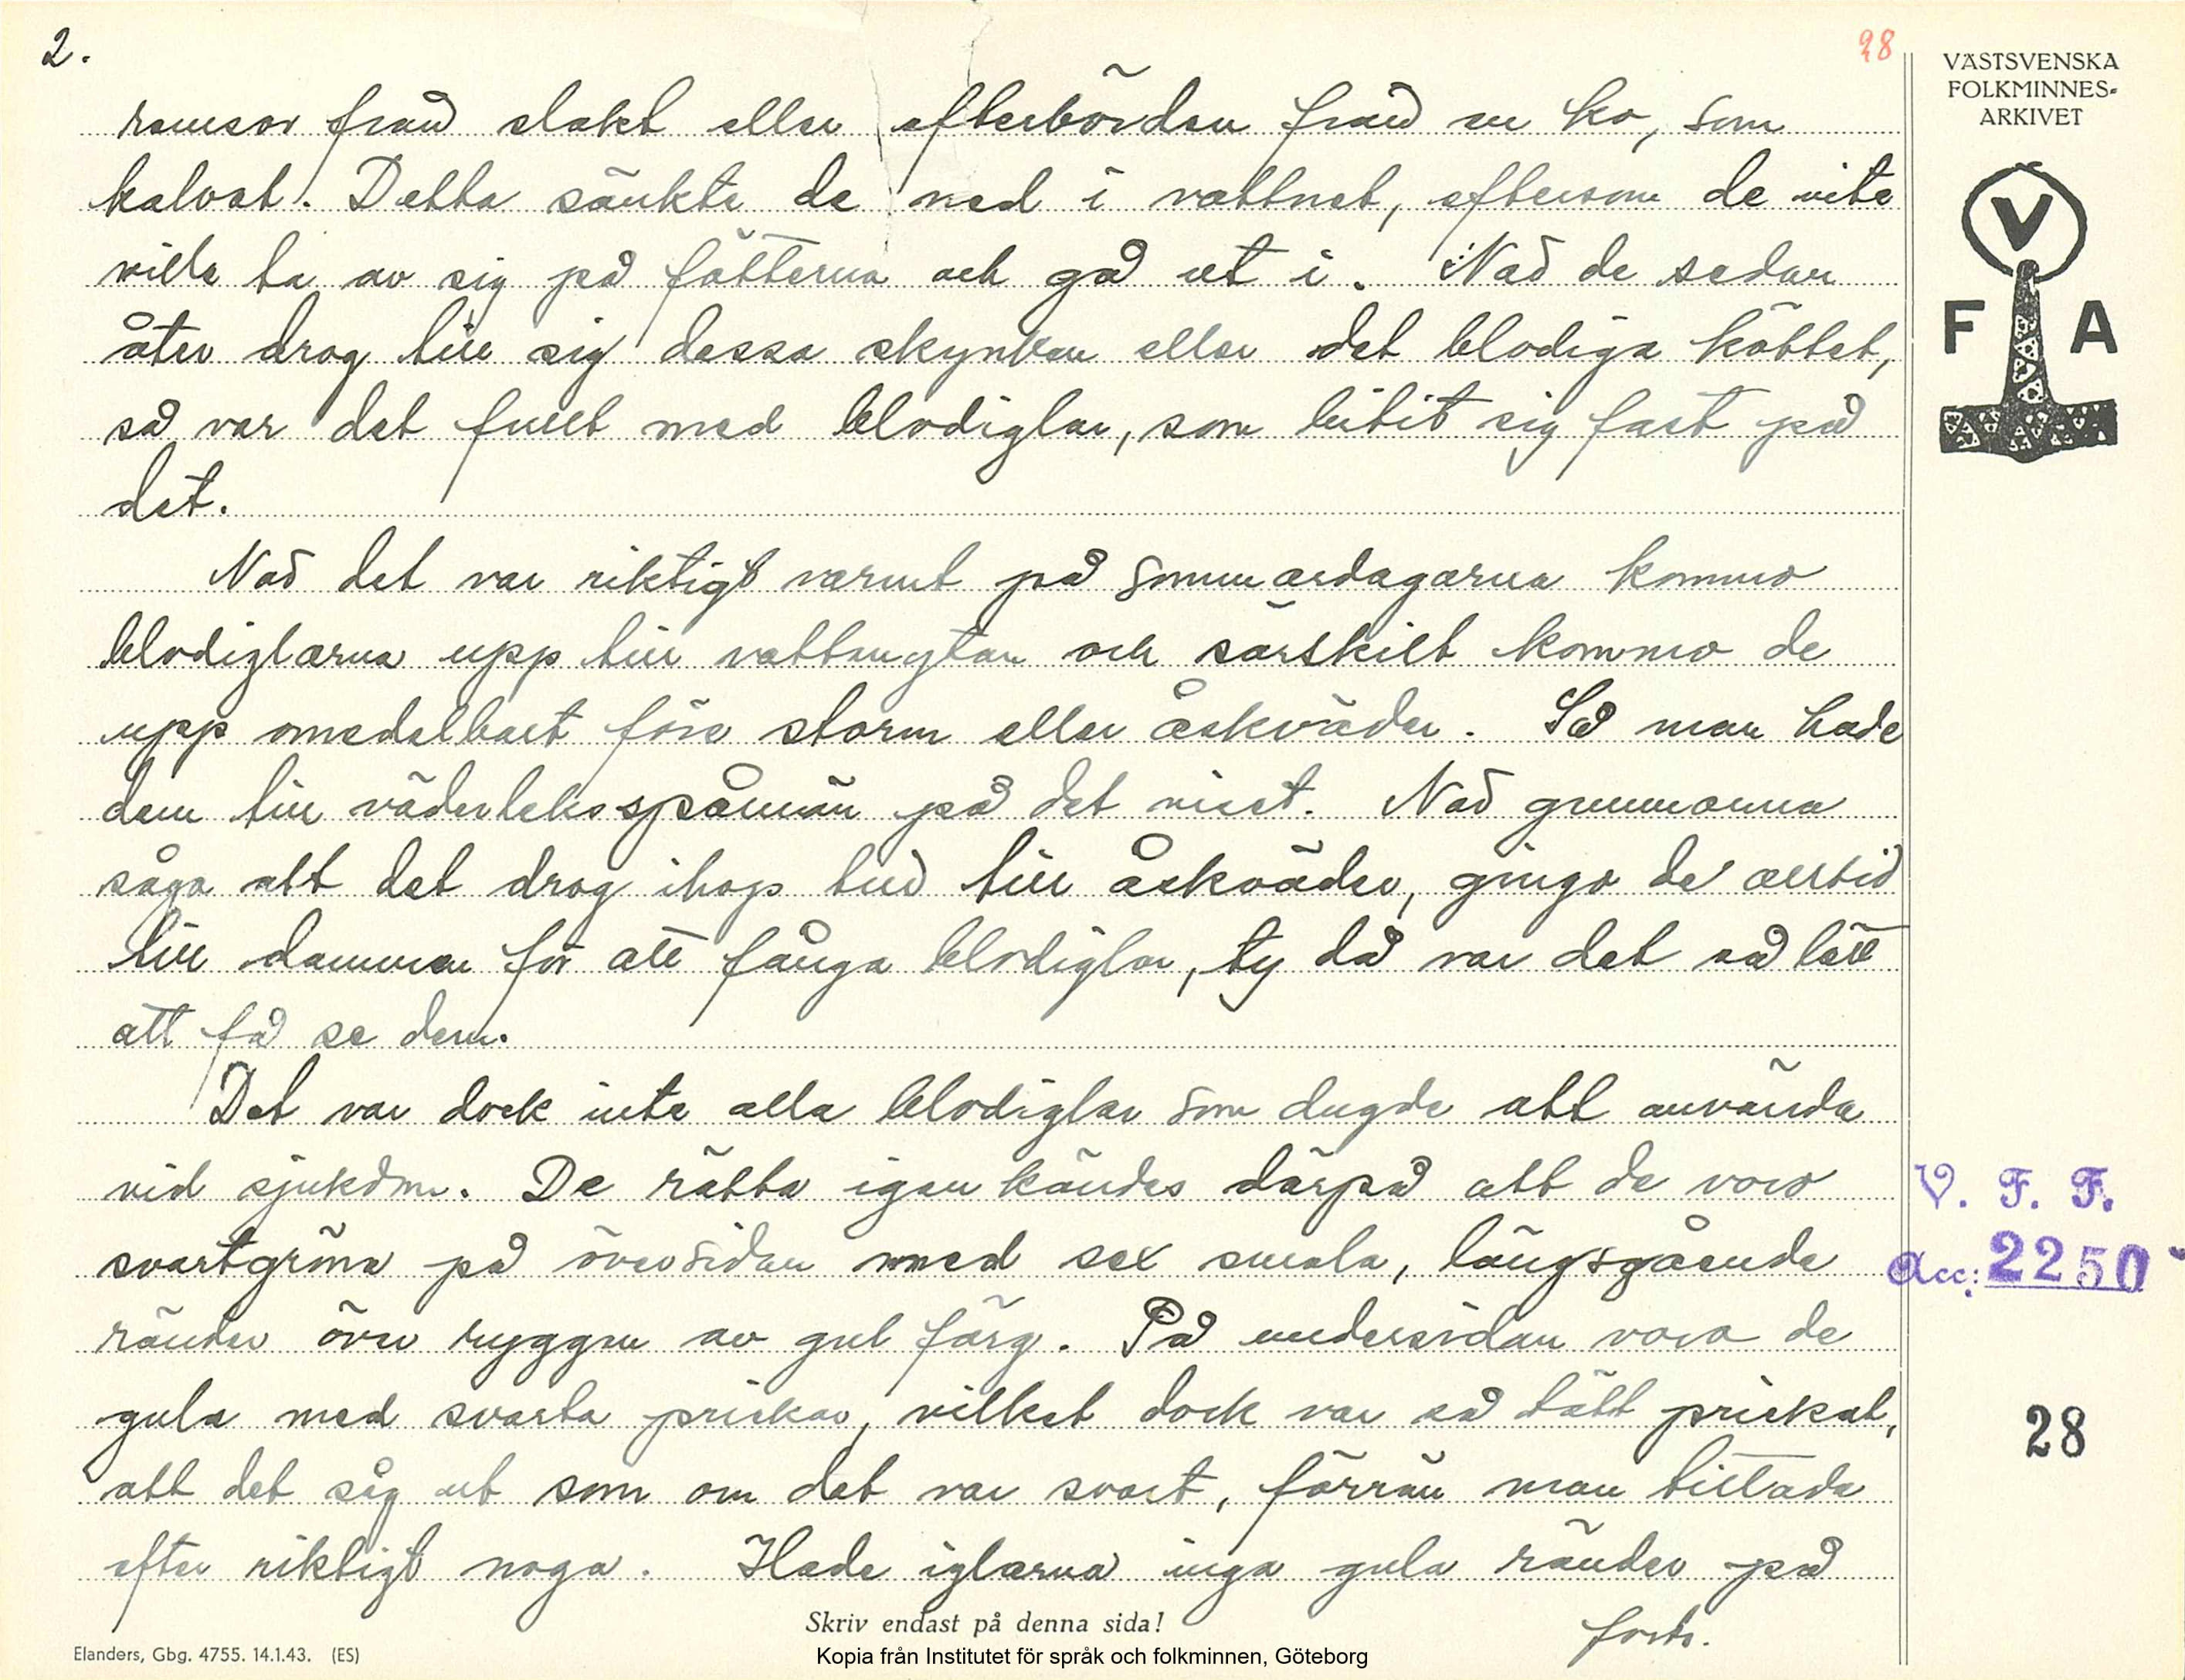 2.
28
VÄSTSVENSKA
FOLKMINNES-
ARKIVET
remsor från slakt eller efterbörden från en ko, som
kalvat. Detta sänkte de ned i vattnet, eftersom de inte
ville ta av sig på fötterna och gå ut i. När de sedan
åter drog till sig dessa skynken eller det blodiga köttet,
så var det fullt med blodiglar, som bitit sig fast på
det.
När det var riktigt varmt på sommardagarna kommo
blodiglarna upp till vattenytan och särskilt kommo de
upp omedelbart före storm eller åskväder. Så man hade
dem till väderleksspåmän på det viset. När gummorna
sågo att det drog ihop sig till åskväder, gingo de alltid
till dammen för att fånga blodiglar, ty då var det så lätt
att få se dem.
Det var dock inte alla blodiglar som dugde att använda
vid sjukdom. De rätta igenkändes därpå att de voro
svartgröna på översidan med sex smala, längsgående
ränder över ryggen av gul färg. På undersidan voro de
gula med svarta prickar, vilket dock var så tätt prickat,
att det såg ut som om det var svart, förrän man tittade
efter riktigt noga. Hade iglarna inga gula ränder på
forts.
V
F A
V. F. F.
Acc: 2250
28
Skriv endast på denna sida!
Elanders, Gbg. 4755. 14.1.43. (ES)
Kopia från Institutet för språk och folkminnen, Göteborg